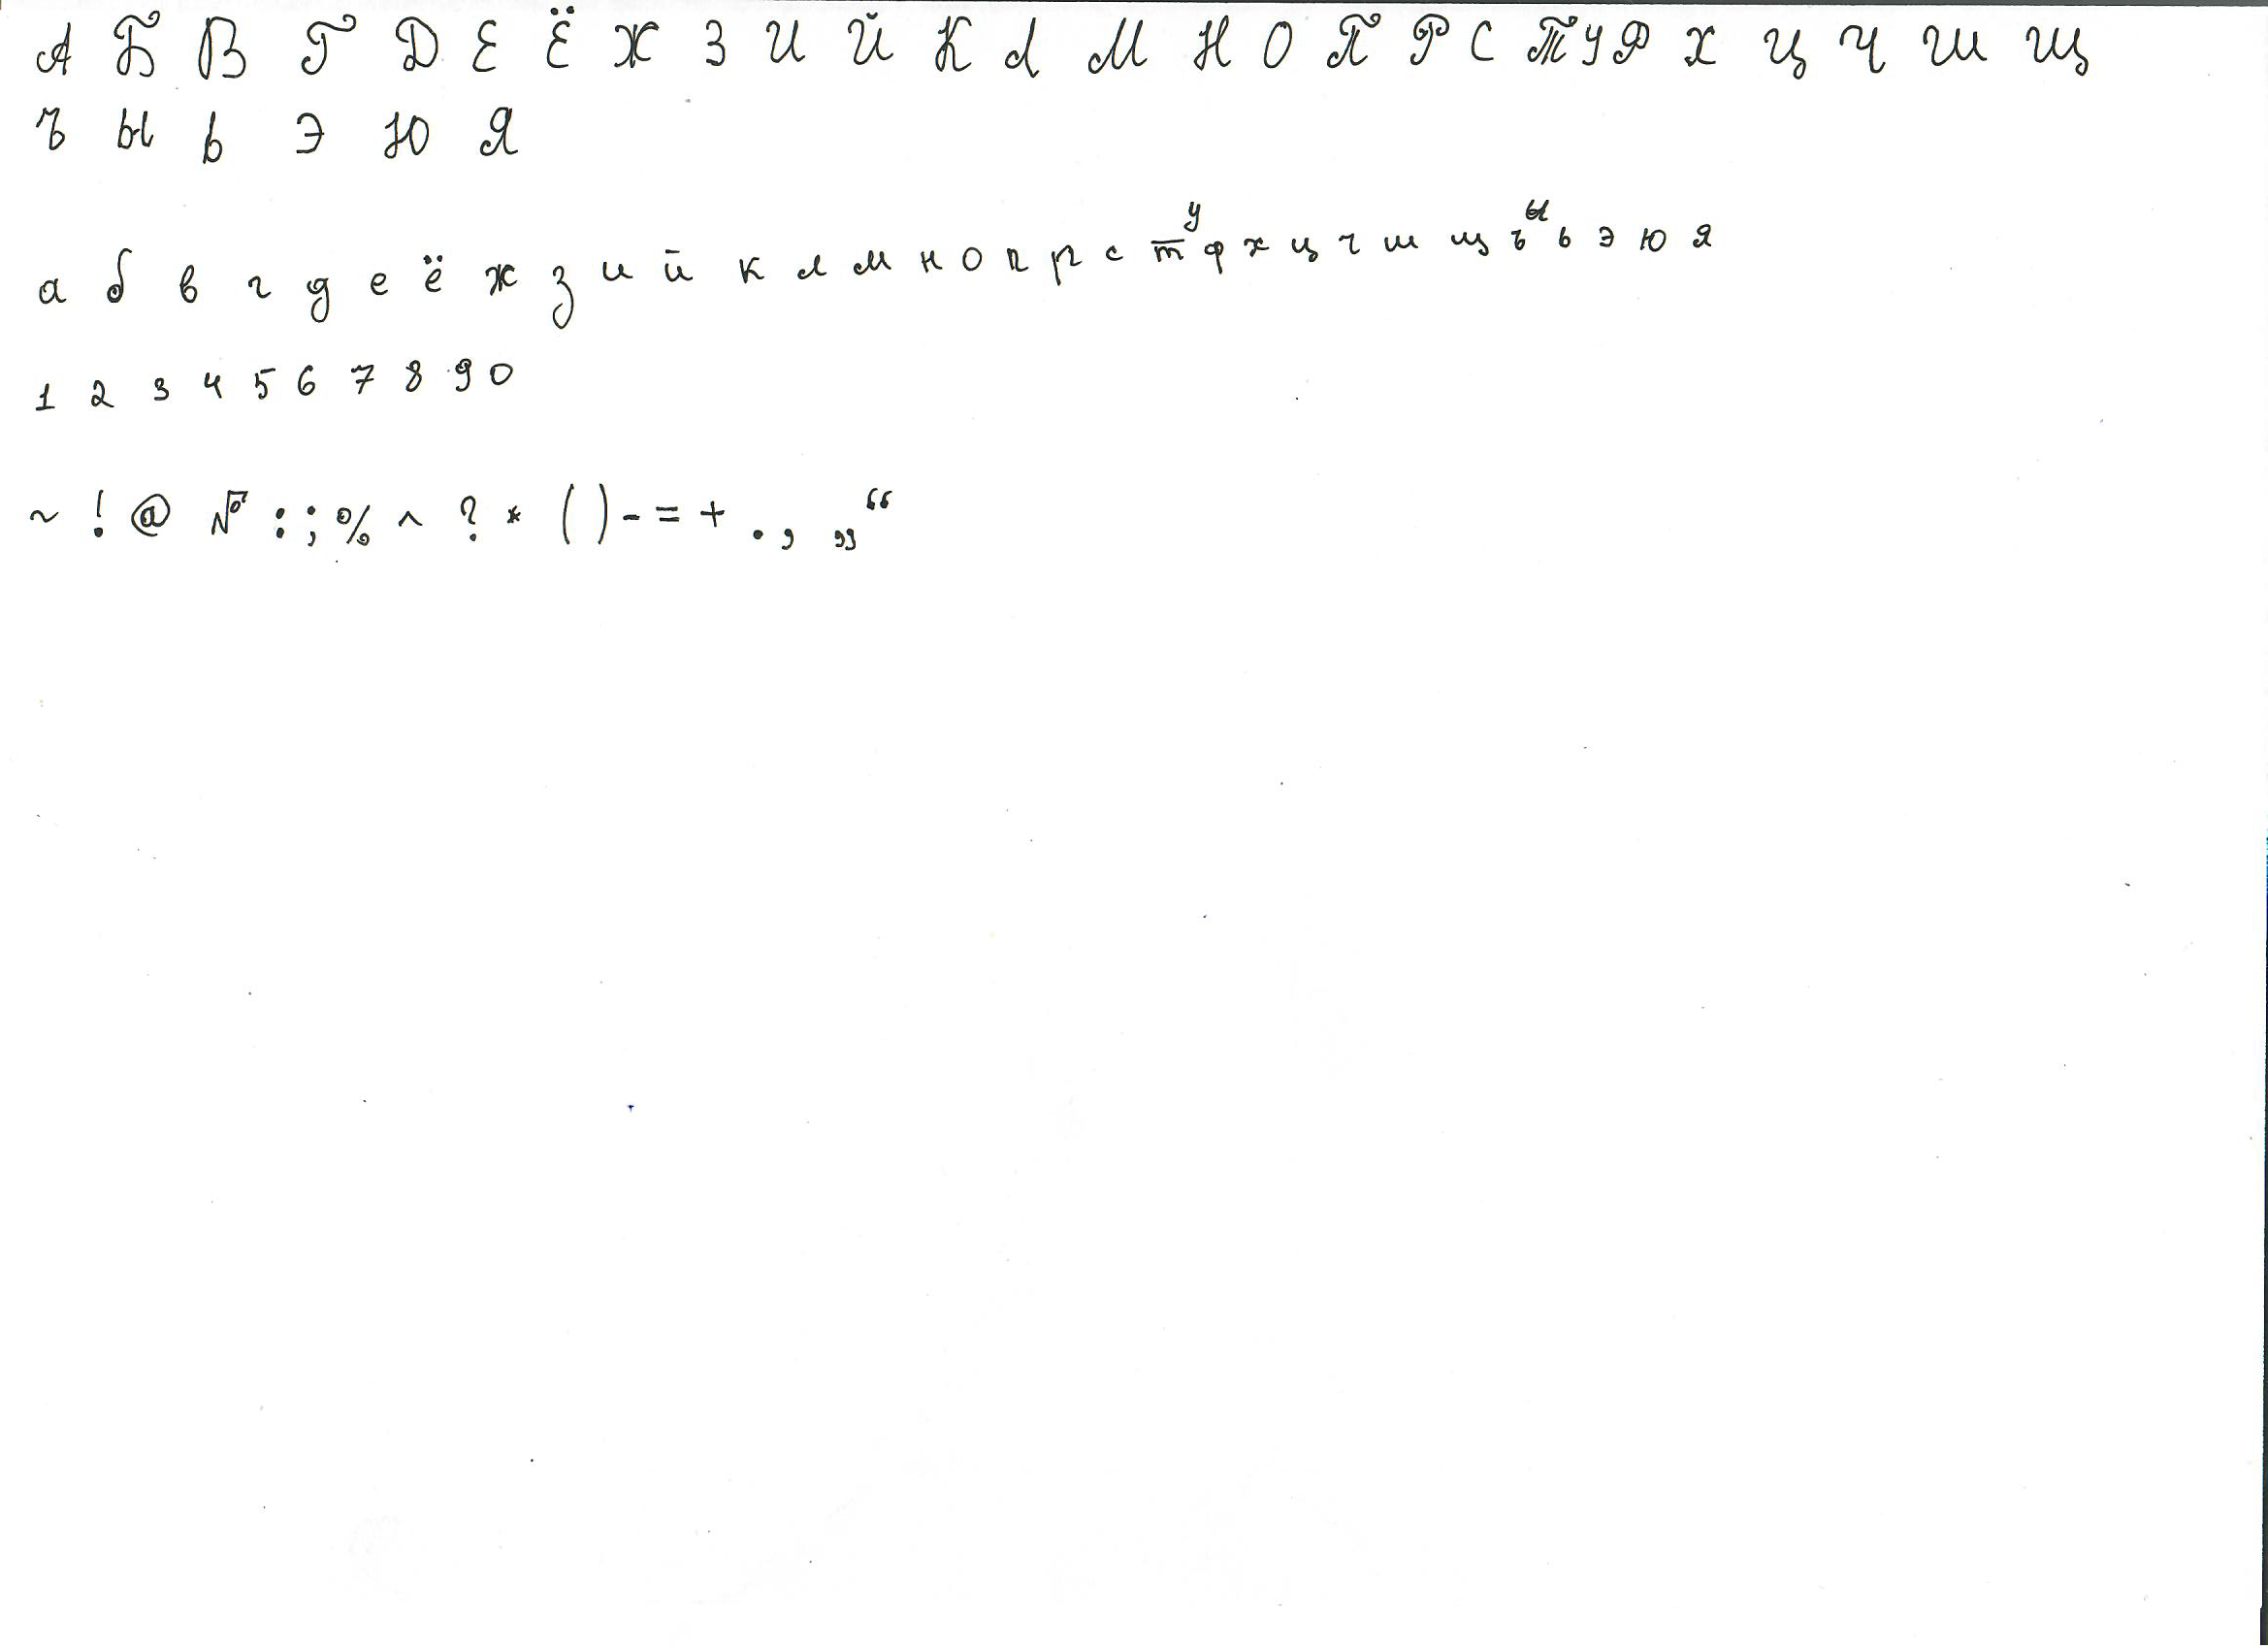 А Б В Г Д Е Ё Ж З И Й К Л М Н О П Р С Т У Ф Х Ц Ч Ш Щ
Ъ Ы Ь Э Ю Я
а б в г д е ё ж з и й к л м н о п р с т у ф х ц ч ш щ ъ ы ь э ю я
1 2 3 4 5 6 7 8 9 0
~ ! @ № : ; % ^ ? * ( ) - = + . , „ “